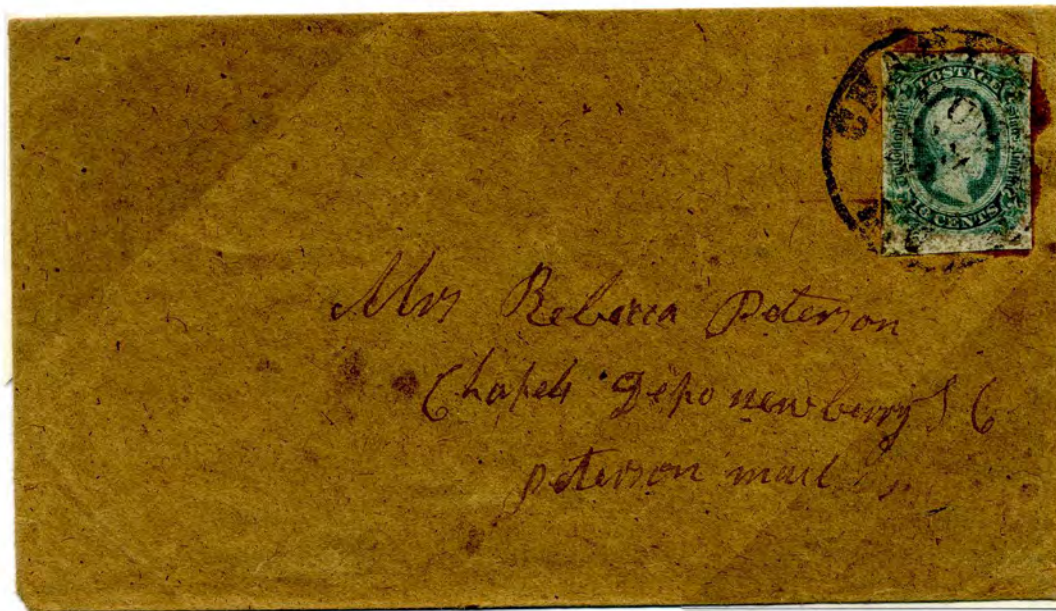 POSTAGE
10 CENTS
Mrs Rebecca Peterson
Chapels Depo newberry S C
peterson mail